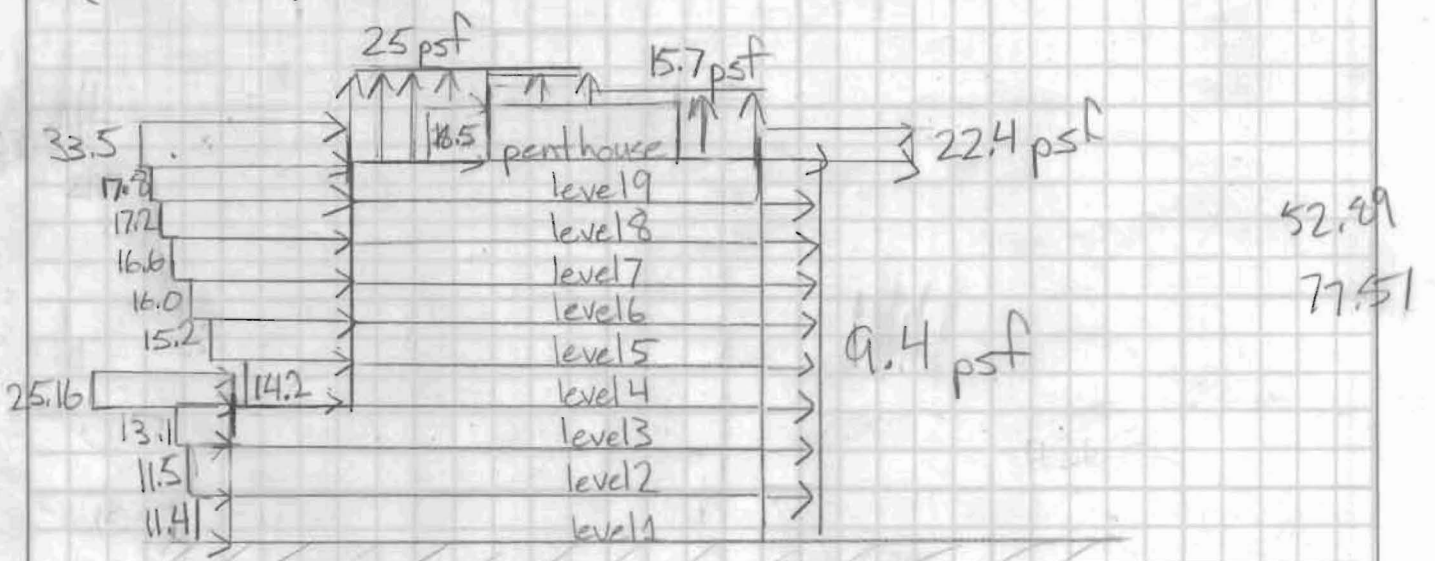 25 psf
15.7 psf
33.5
18.5
penthouse
22.4 psf
17.8
level9
17.2
level8
52.89
16.6
level7
77.51
16.0
level6
15.2
level5
9.4 psf
25.16
14.2
level4
13.1
level3
11.5
level2
11.4
level1